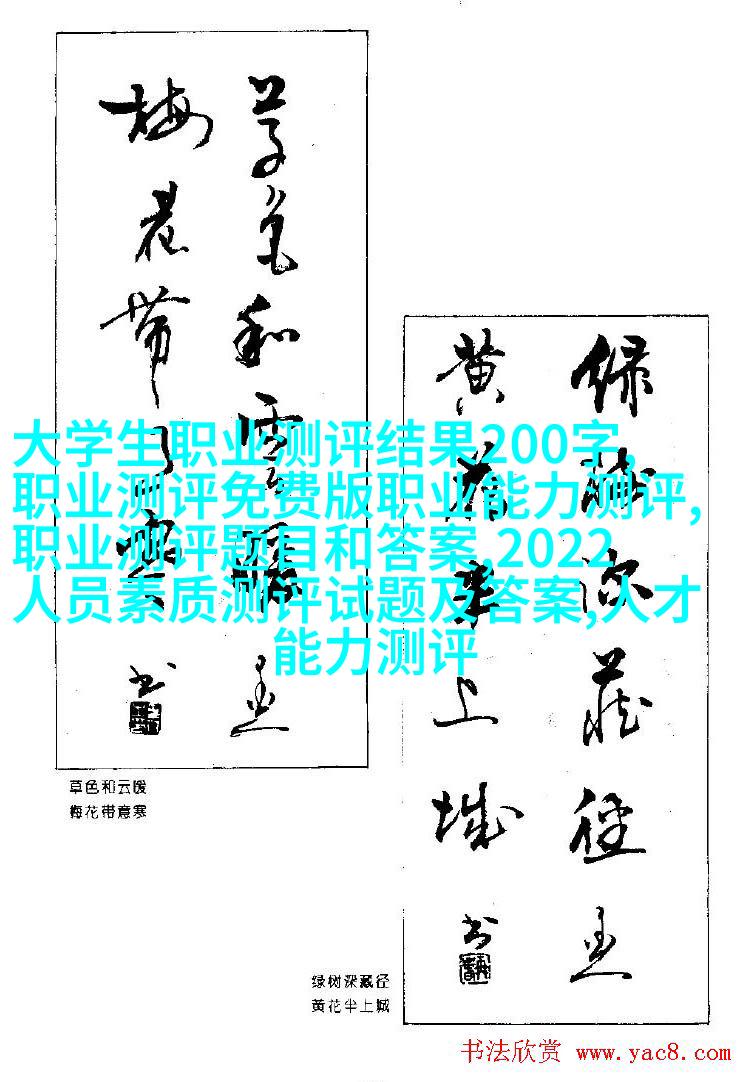 草色和雲暖
梅花带
书
大学生职业测评结果200字,
职业测评免费版职业能力测评,
职业测评题目和答案,2022
人员素质测评试题及答案,人才
能力测评
草色和云暖
梅花带意寒
绿树深藏径
黄花半上城
书
绿树深藏径
黄花半上城
书法欣赏 www.yac8.com